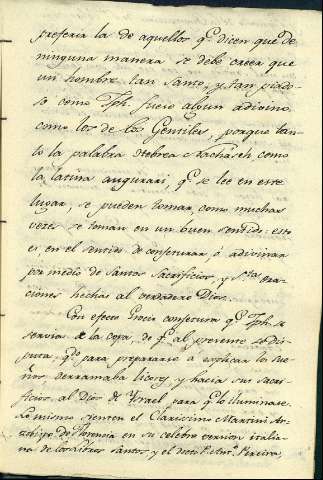 preferia la de aquellos q.e dicen que de
ninguna manera se debe creer que
un hombre tan Santo, y tan piado-
so como Jph. fuese algun adivino
como los de los Gentiles, porque tan-
to la palabra Hebrea Nachasch como
la latina augurari, q.e se lee en este
lugar, se pueden tomar como muchas
veces se toman en un buen sentido: esto
es, en el sentido de conjeturar, ó adivinar
por medio de Santos Sacrificios, y s.tas ora-
ciones hechas al verdadero Dios.
Con efecto Grocio conjetura q.e Jph. se
servia de la copa, de q.e al presente se dis-
puta, q.do para prepararse á explicar los sue-
ños derramaba licor, y hacia sus sacri-
ficios al Dios de Ysrael para q.e lo iluminase.
Lo mismo sienten el Clarisimo Martini Ar-
zobispo de Florencia en su celebre version italia-
na de los libros santos, y el docto Pereira,